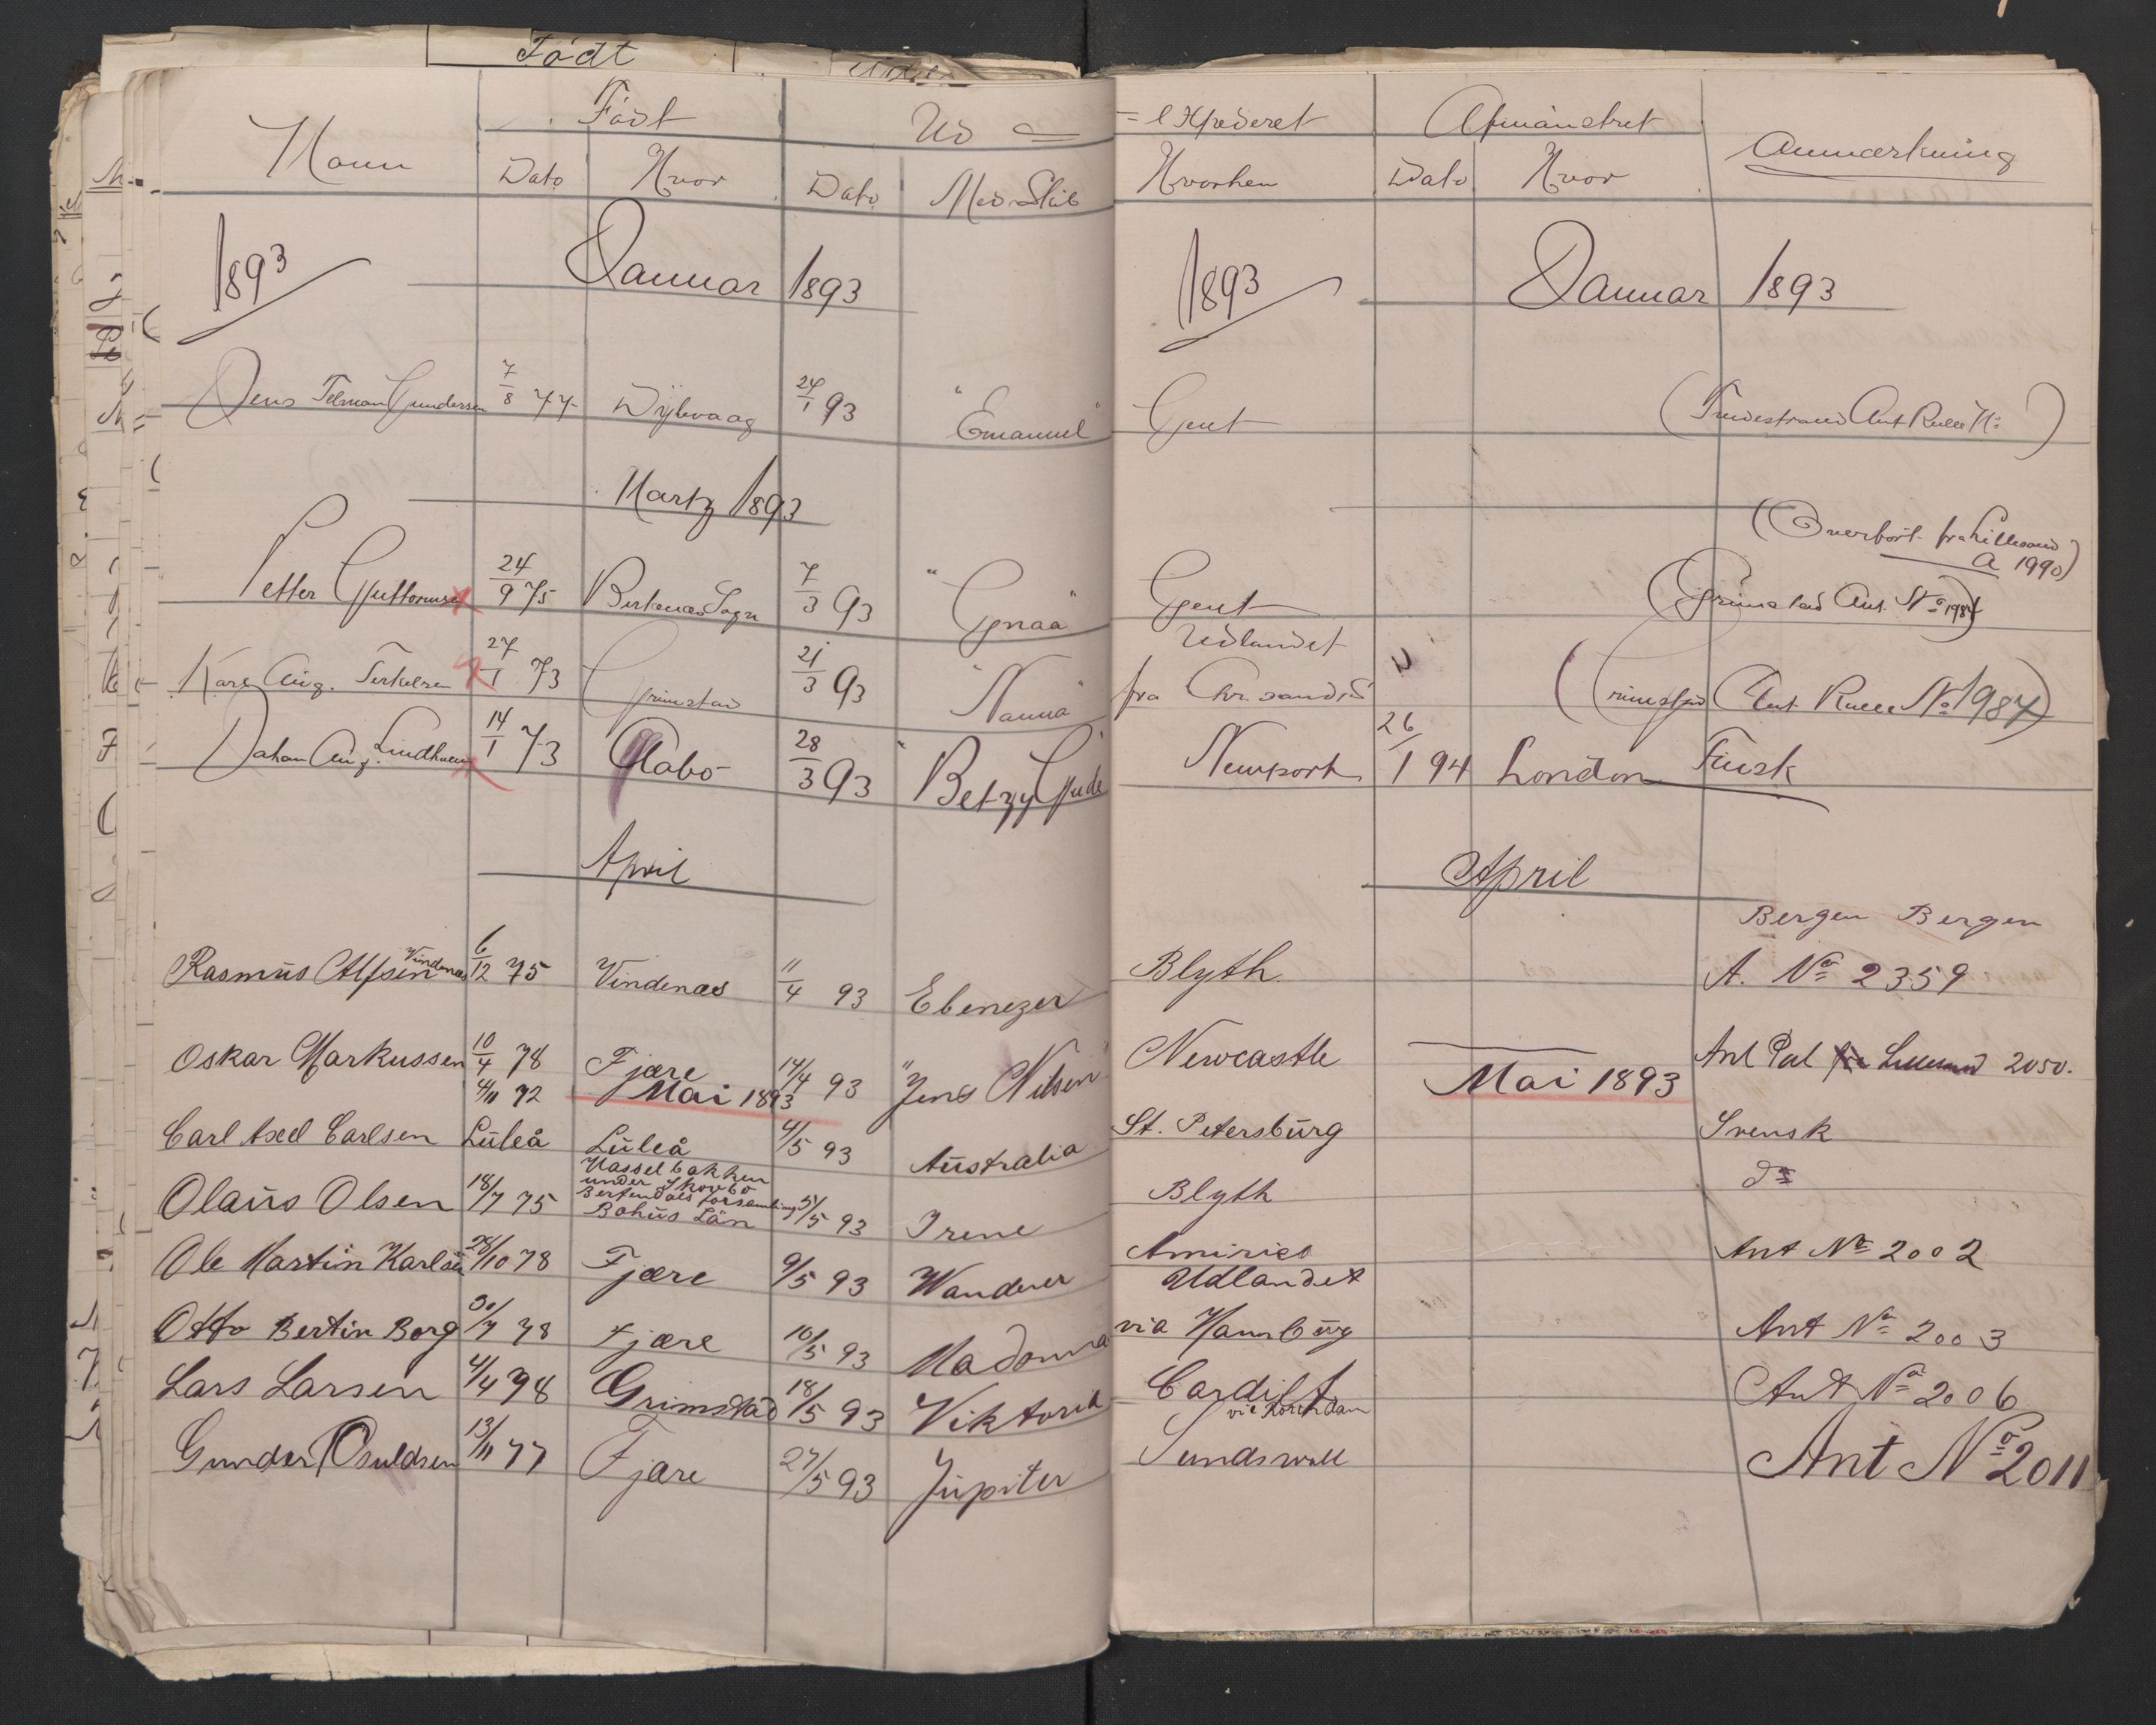 Født
Navn Født Ud = = expederet Afmønstret Anmærkning
Dato Hvor Dato Med Skib Hvorhen Dato Hvor
1893 Januar 1893 1893 Januar 1893
Jens Telman Gundersen 7/8 77 Dybvaag 24/1 93 "Emanuel" Gent (Tvedestrand Ant Rulle No)
Martz 1893
(Overført fra Lillesand
A 1990)
Petter Guttormsen 24/9 75 Birkenes Sogn 7/3 93 "Gnaa" Gent (Grimstad Ant. No 1984)
Udlandet
Karl Aug. Terkelsen 27/1 73 Grimstad 21/3 93 "Nanna" fra Chr.sand (Grimstad Ant. Rulle No 1987)
Johan Aug. Lindholm 14/1 73 Aabo 28/3 93 "Betzy Gude" Newport 26/1 94 London Finsk
April April
Bergen Bergen
Rasmus Alfsen Vindenes 6/12 75 Vindenæs 11/4 93 Ebenezer Blyth A. No 2359
Oskar Markussen 10/4 78 Fjære 14/4 93 "Jens Nilsen" Newcastle Ant Pul fra Lillesand 2050.
Mai 1893 Mai 1893
Carl Axel Carlsen 4/11 72 Luleå Luleå 4/5 93 Australia St. Petersburg Svensk
Hasselbakken
under Skovbo
Olaus Olsen 18/7 75 Berfendals forsamling 5/5 93 Irene Blyth do
Bohus Län
Ole Martin Karlsen 28/10 78 Fjære 9/5 93 Wanderer Amirica Ant No 2002
Udlandet
Otto Bertin Borg 30/7 78 Fjære 10/5 93 Madonna via Hamburg Ant No 2003
Lars Larsen 4/4 78 Grimstad 18/5 93 Viktoria Cardiff Ant No 2006
Gunder Osuldsen 13/11 77 Fjære 27/5 93 Jupiter Sundswall Ant No 2011